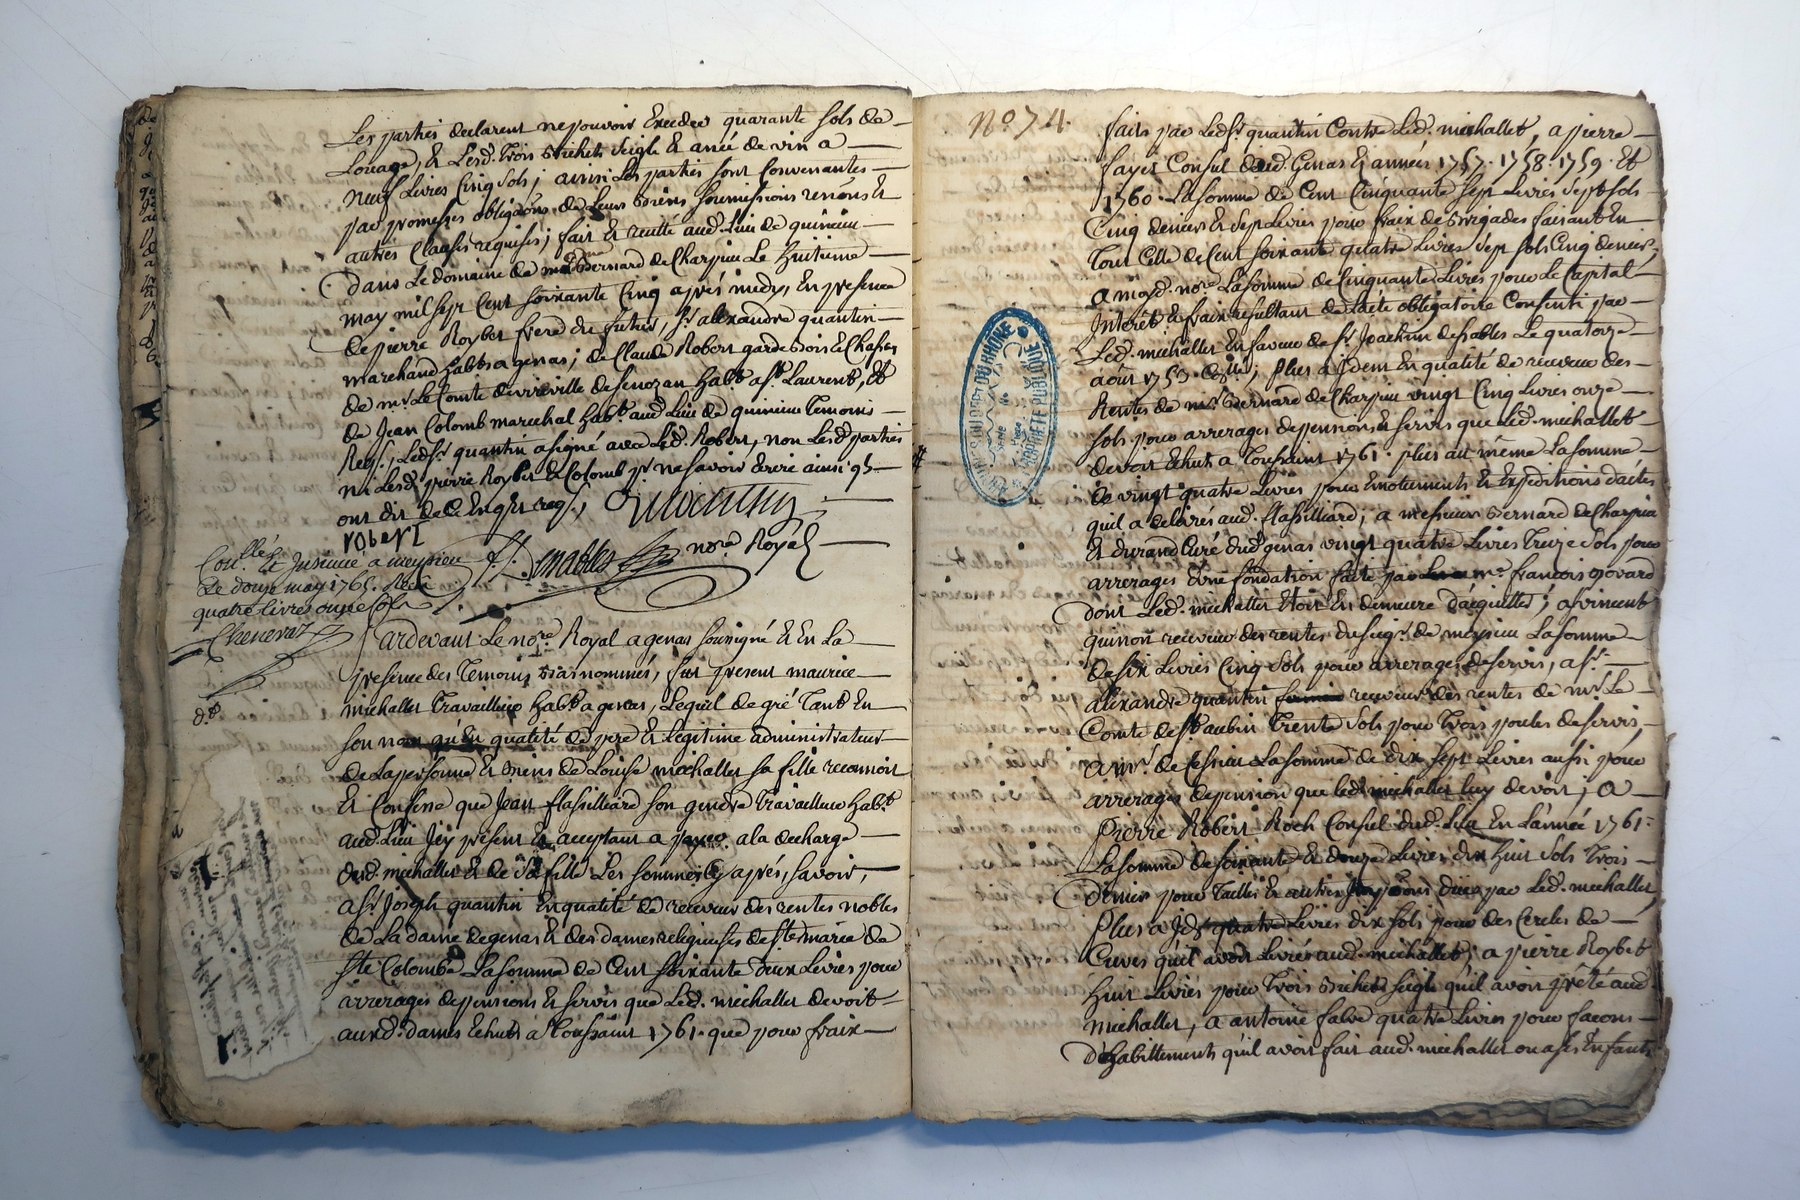 Les parties declarent ne pouvoir Exceder quarante sols de
Louage, & Lesd. trois Bichets seigle & anée de vin a
neuf Livres Cinq sols; ainsi Les parties sont Convenantes
par promesses obligaons de Leurs Biens soumissions renons &
autres Clauses requises; fait & recitté aud. Lieu de quincieu
Dans Le domaine de Bernard de Charpieu Le huitieme
may mil sept Cent soixante Cinq après midy, En presence
de pierre Roybet frere du futur, sr. alexandre quantin
marchand habt. a genas; de Claude Robert garde Bois & Chasses
de mr. Le Comte de vireville de senozan habt. a st. Laurent, &
de Jean Colomb marechal habt. aud. Lieu de quincieu temoins
Reqs.; Ledsr. quantin a signé avec Led. Robert, non Lesd. parties
ni Lesd. pierre Roybet & Colomb pr. ne savoir Ecrire ainsi qs.
ont dit de Ce Enqs. & reqs.,
robert
Desnables nore. Royal
Conllé. & Insinué a meyzieu
Le douze may 1765. Recu
quatre livres onze sols
Chenevaz
Pardevant Le nore. Royal a genas soussigné & En La
presence des temoins Bas nommés, fut present maurice
michallet travailleur habt. a genas, Lequel de gré tant En
son nom qu'En qualité de pere & Legitime administrateur
de La personne & Biens de Louise michallet sa fille reconnoit
& Confesse que Jean flassilliard son gendre travailleur habt.
aud. Lieu Icy present & acceptant a payé a la decharge
dud. michallet & de sa fille Les sommes Cy après, savoir,
a sr. Joseph quantin En qualité de receveur des rentes nobles
de La dame de genas & des dames religieuses de ste. marie de
ste. Colombe La somme de Cent soixante deux Livres pour
arrerages de pensions & servis que Led. michallet devoit
auxd. dames Echus à toussaint 1761. que pour fraix
No. 74.
faits par Ledsr. quantin Contre Led. michallet, a pierre
fayet Consul dud. Genas & années 1757. 1758. 1759. &
1760. La somme de Cent Cinquante sept Livres sept sols
Cinq deniers & sept Livres pour fraix de Brigades faisant En
tout Celle de Cent soixante quatre Livres sept sols Cinq deniers,
a moyd. nore. La somme de Cinquante Livres pour Le Capital
Interêt & fraix resultant de L'acte obligatoire Consenti par
Led. michallet En faveur de sr. Joachim desnables Le quatorze
août 1759.; plus a Idem En qualité de receveur des
Rentes de mr. Bernard de Charpieu vingt Cinq Livres onze
sols pour arrerages de pensions & servis que Led. michallet
devoit Echus a toussaint 1761. plus au même La somme
de vingt quatre Livres pour Emoluments & Expeditions d'actes
qu'il a delivrés aud. flassilliard, a messieurs Bernard de Charpieu
& durand Curé dud. genas vingt quatre Livres treize sols pour
arrerages d'une fondation faite par me. francois
dont Led. michallet Etoit En demeure d'acquitter; a vincent
quinon receveur des rentes du seigr. de meyzieu La somme
de six Livres Cinq sols pour arrerages de servis, a sr.
alexandre quantin receveur des rentes de mr. Le
Comte de st. aubin trente sols pour trois poules de servis,
a mr. de Cessieu La somme de dix sept Livres aussi pour
arrerages de pension que Led. michallet Luy devoit, a
Pierre Robert Roch Consul dud. Lieu En L'année 1761.
La somme de soixante & douze Livres dix huit sols trois
deniers pour tailles & autres Impôons dues par Led. michallet,
Plus a Id. quatre Livres dix sols pour des Cercles de
Cuves qu'il avoit Livrés aud. michallet; a pierre Roybet
huit Livres pour trois Bichets seigle qu'il avoit prêté aud.
michallet, a antoine falve quatre Livres pour facons
d'habillements qu'il avoit fait aud. michallet ou a ses Enfants
PROPRIETE PUBLIQUE